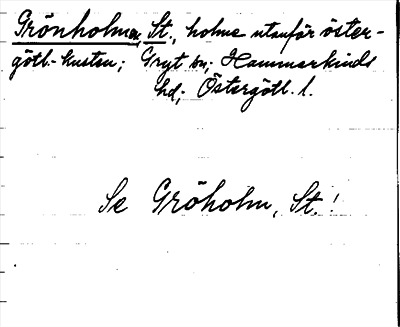 Grönholmen, St., holme utanför öster-
götl.-kusten; Gryt sn; Hammarkinds
hd; Östergötl. l.
Se Gröholm, St.!